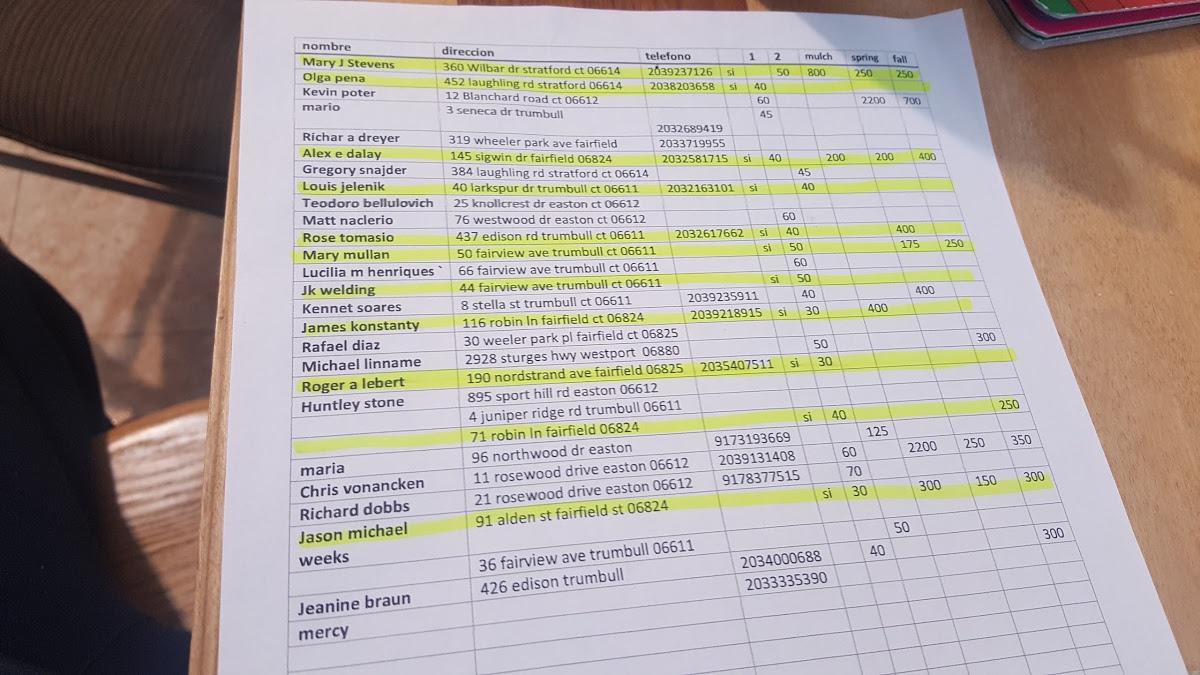 nombre direccion telefono 1 2 mulch spring fall
Mary J Stevens 360 Wilbar dr stratford ct 06614 2039237126 si 50 800 250 250
Olga pena 452 laughling rd stratford 06614 2038203658 si 40
Kevin poter 12 Blanchard road ct 06612 60 2200 700
mario 3 seneca dr trumbull 2032689419 45
Richar a dreyer 319 wheeler park ave fairfield 2033719955
Alex e dalay 145 sigwin dr fairfield 06824 2032581715 si 40 200 200 400
Gregory snajder 384 laughling rd stratford ct 06614 45
Louis jelenik 40 larkspur dr trumbull ct 06611 2032163101 si 40
Teodoro bellulovich 25 knollcrest dr easton ct 06612
Matt naclerio 76 westwood dr easton ct 06612 60
Rose tomasio 437 edison rd trumbull ct 06611 2032617662 si 40 400
Mary mullan 50 fairview ave trumbull ct 06611 si 50 175 250
Lucilia m henriques ` 66 fairview ave trumbull ct 06611 60
Jk welding 44 fairview ave trumbull ct 06611 si 50
Kennet soares 8 stella st trumbull ct 06611 2039235911 40 400
James konstanty 116 robin ln fairfield ct 06824 2039218915 si 30 400
Rafael diaz 30 weeler park pl fairfield ct 06825
Michael linname 2928 sturges hwy westport 06880 50 300
Roger a lebert 190 nordstrand ave fairfield 06825 2035407511 si 30
Huntley stone 895 sport hill rd easton 06612
4 juniper ridge rd trumbull 06611
71 robin ln fairfield 06824 si 40 250
maria 96 northwood dr easton 9173193669 125
Chris vonancken 11 rosewood drive easton 06612 2039131408 60 2200 250 350
Richard dobbs 21 rosewood drive easton 06612 9178377515 70
Jason michael 91 alden st fairfield st 06824 si 30 300 150 300
weeks
36 fairview ave trumbull 06611 50
Jeanine braun 426 edison trumbull 2034000688 40 300
mercy 2033335390